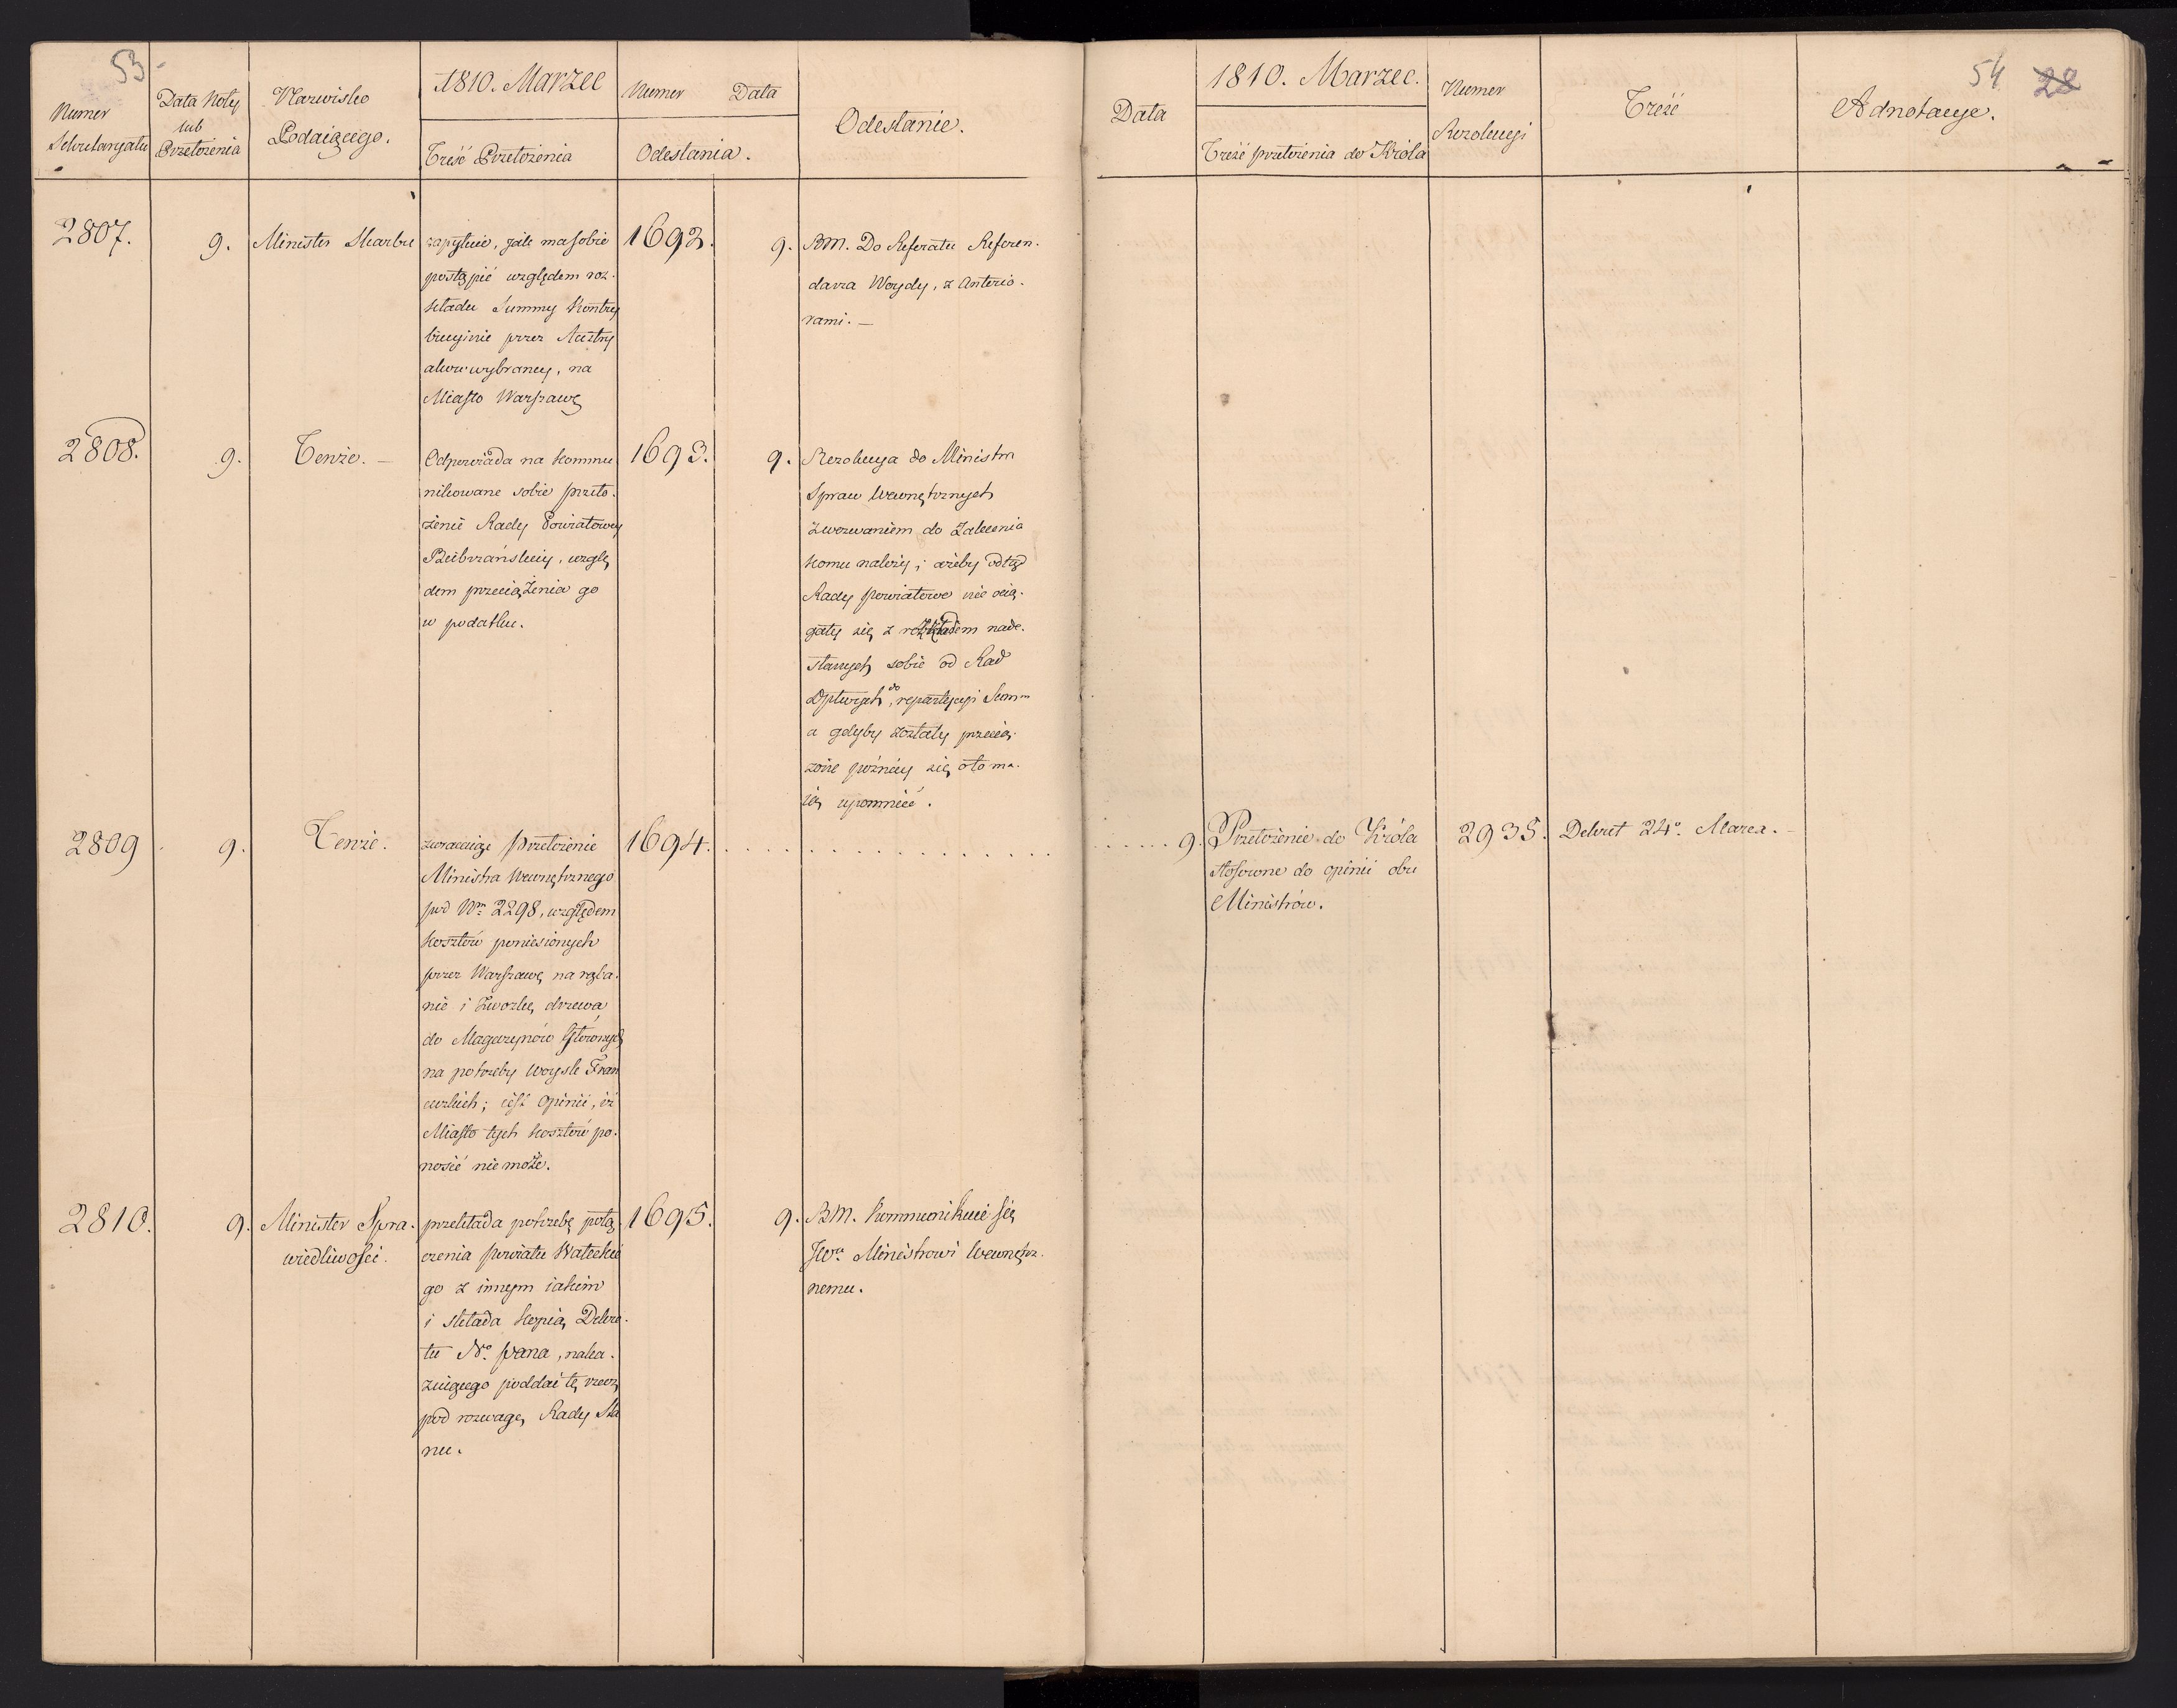 53
Numer
Sekretaryatu
Data Noty
lub
Przełożenia
Nazwisko
Podaiącego.
1810. Marzec
Treść Przełożenia
Numer Data
Odesłania.
Odesłanie.
2807.
9.
Minister Skarbu
zapytuie, jak ma sobie
postąpić względem roz-
kładu Summy Kontry
bucyinie przez Austry
aków wybraney, na
Miasto Warszawę
1692.
9.
BM. Do Referatu Referen-
darza Woydy, z Anterio-
rami. —
2808.
9.
Tenże. —
Odpowiada na kommu
nikowane sobie przeło-
żenie Rady Powiatowey
Biebrzańskiey, wzglę
dem przeciążenia go
w podatku.
1693.
9.
Rezolucya do Ministra
Spraw Wewnętrznych
z wezwaniem do zalecenia
komu należy, ażeby odtąd
Rady powiatowe nie ocią-
gały się z rozkładem nade-
słanych sobie od Rad
Dpttwych do repartycyi Summ
a gdyby zostały przecią-
żone późniey się o to ma-
ią upomnieć.
2809
9.
Tenże.
zwracaiąc Przełożenie
Ministra Wewnętrznego
pod Nrm 2298, względem
kosztów poniesionych
przez Warszawę na rąba-
nie i zwozkę drzewa
do Magazynów Głównych
na potrzeby Woysk Fran
cuzkich; iest opinii, iż
Miasto tych kosztów po-
nosić nie może.
1694.
2810.
9.
Minister Spra-
wiedliwości.
przekłada potrzebę połą-
czenia powiatu Wałeckie
go z innym iakim
i składa kopią Dekre-
tu No. Pana, naka-
zuiącego poddać tę rzecz
pod rozwagę Rady Sta
nu.
1695.
9.
BM. Kommunikuie się
JW. Ministrowi Wewnętrz-
nemu.
54 28
Data
1810. Marzec.
Treść przełożenia do Króla
Numer
Rezolucyi
Treść
Adnotacye.
9.
Przełożenie do Króla
stosowne do opinii obu
Ministrów.
2935.
Dekret 24o. Marca. —